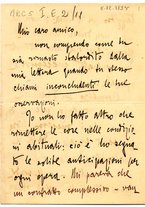 ABC 5 I, E, 2/11
Mio caro amico,
non comprendo come tu
sia rimasto sbalordito dalla
mia lettera quando tu stesso
chiami inconcludenti le tue
osservazioni.
Io non ho fatto altro che
rimettere le cose nelle condizio
ni abituali: cioè ho segna
to le solite anticipazioni per
ogni opera. Mi pareva che
un contratto complessivo - van